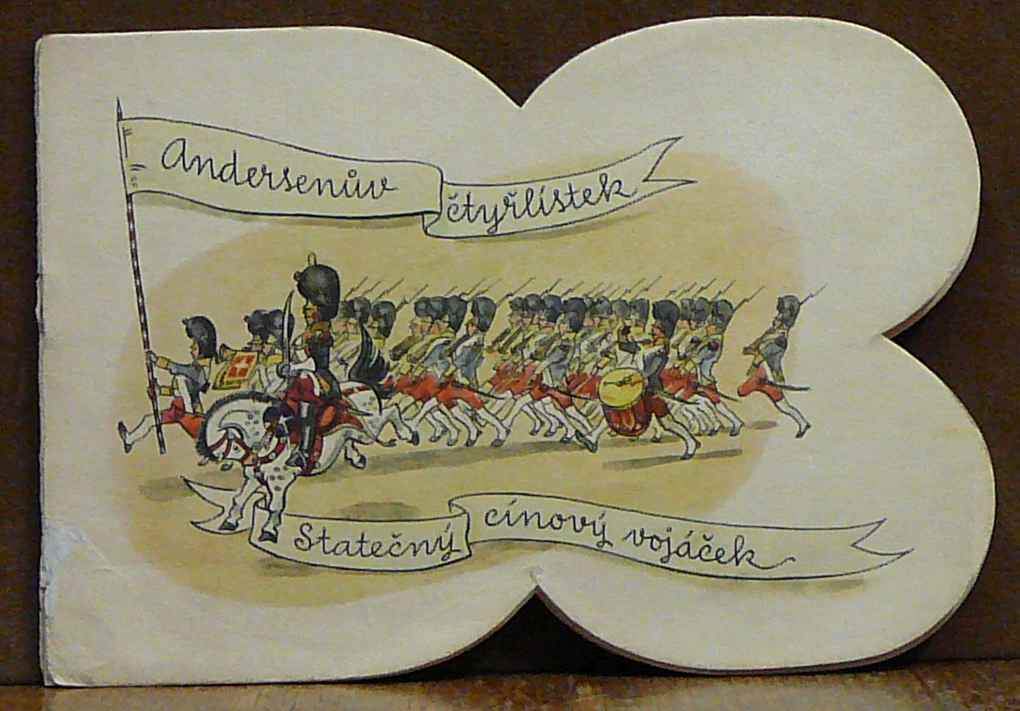 Andersenův
čtyřlístek
Statečný
cínový vojáček